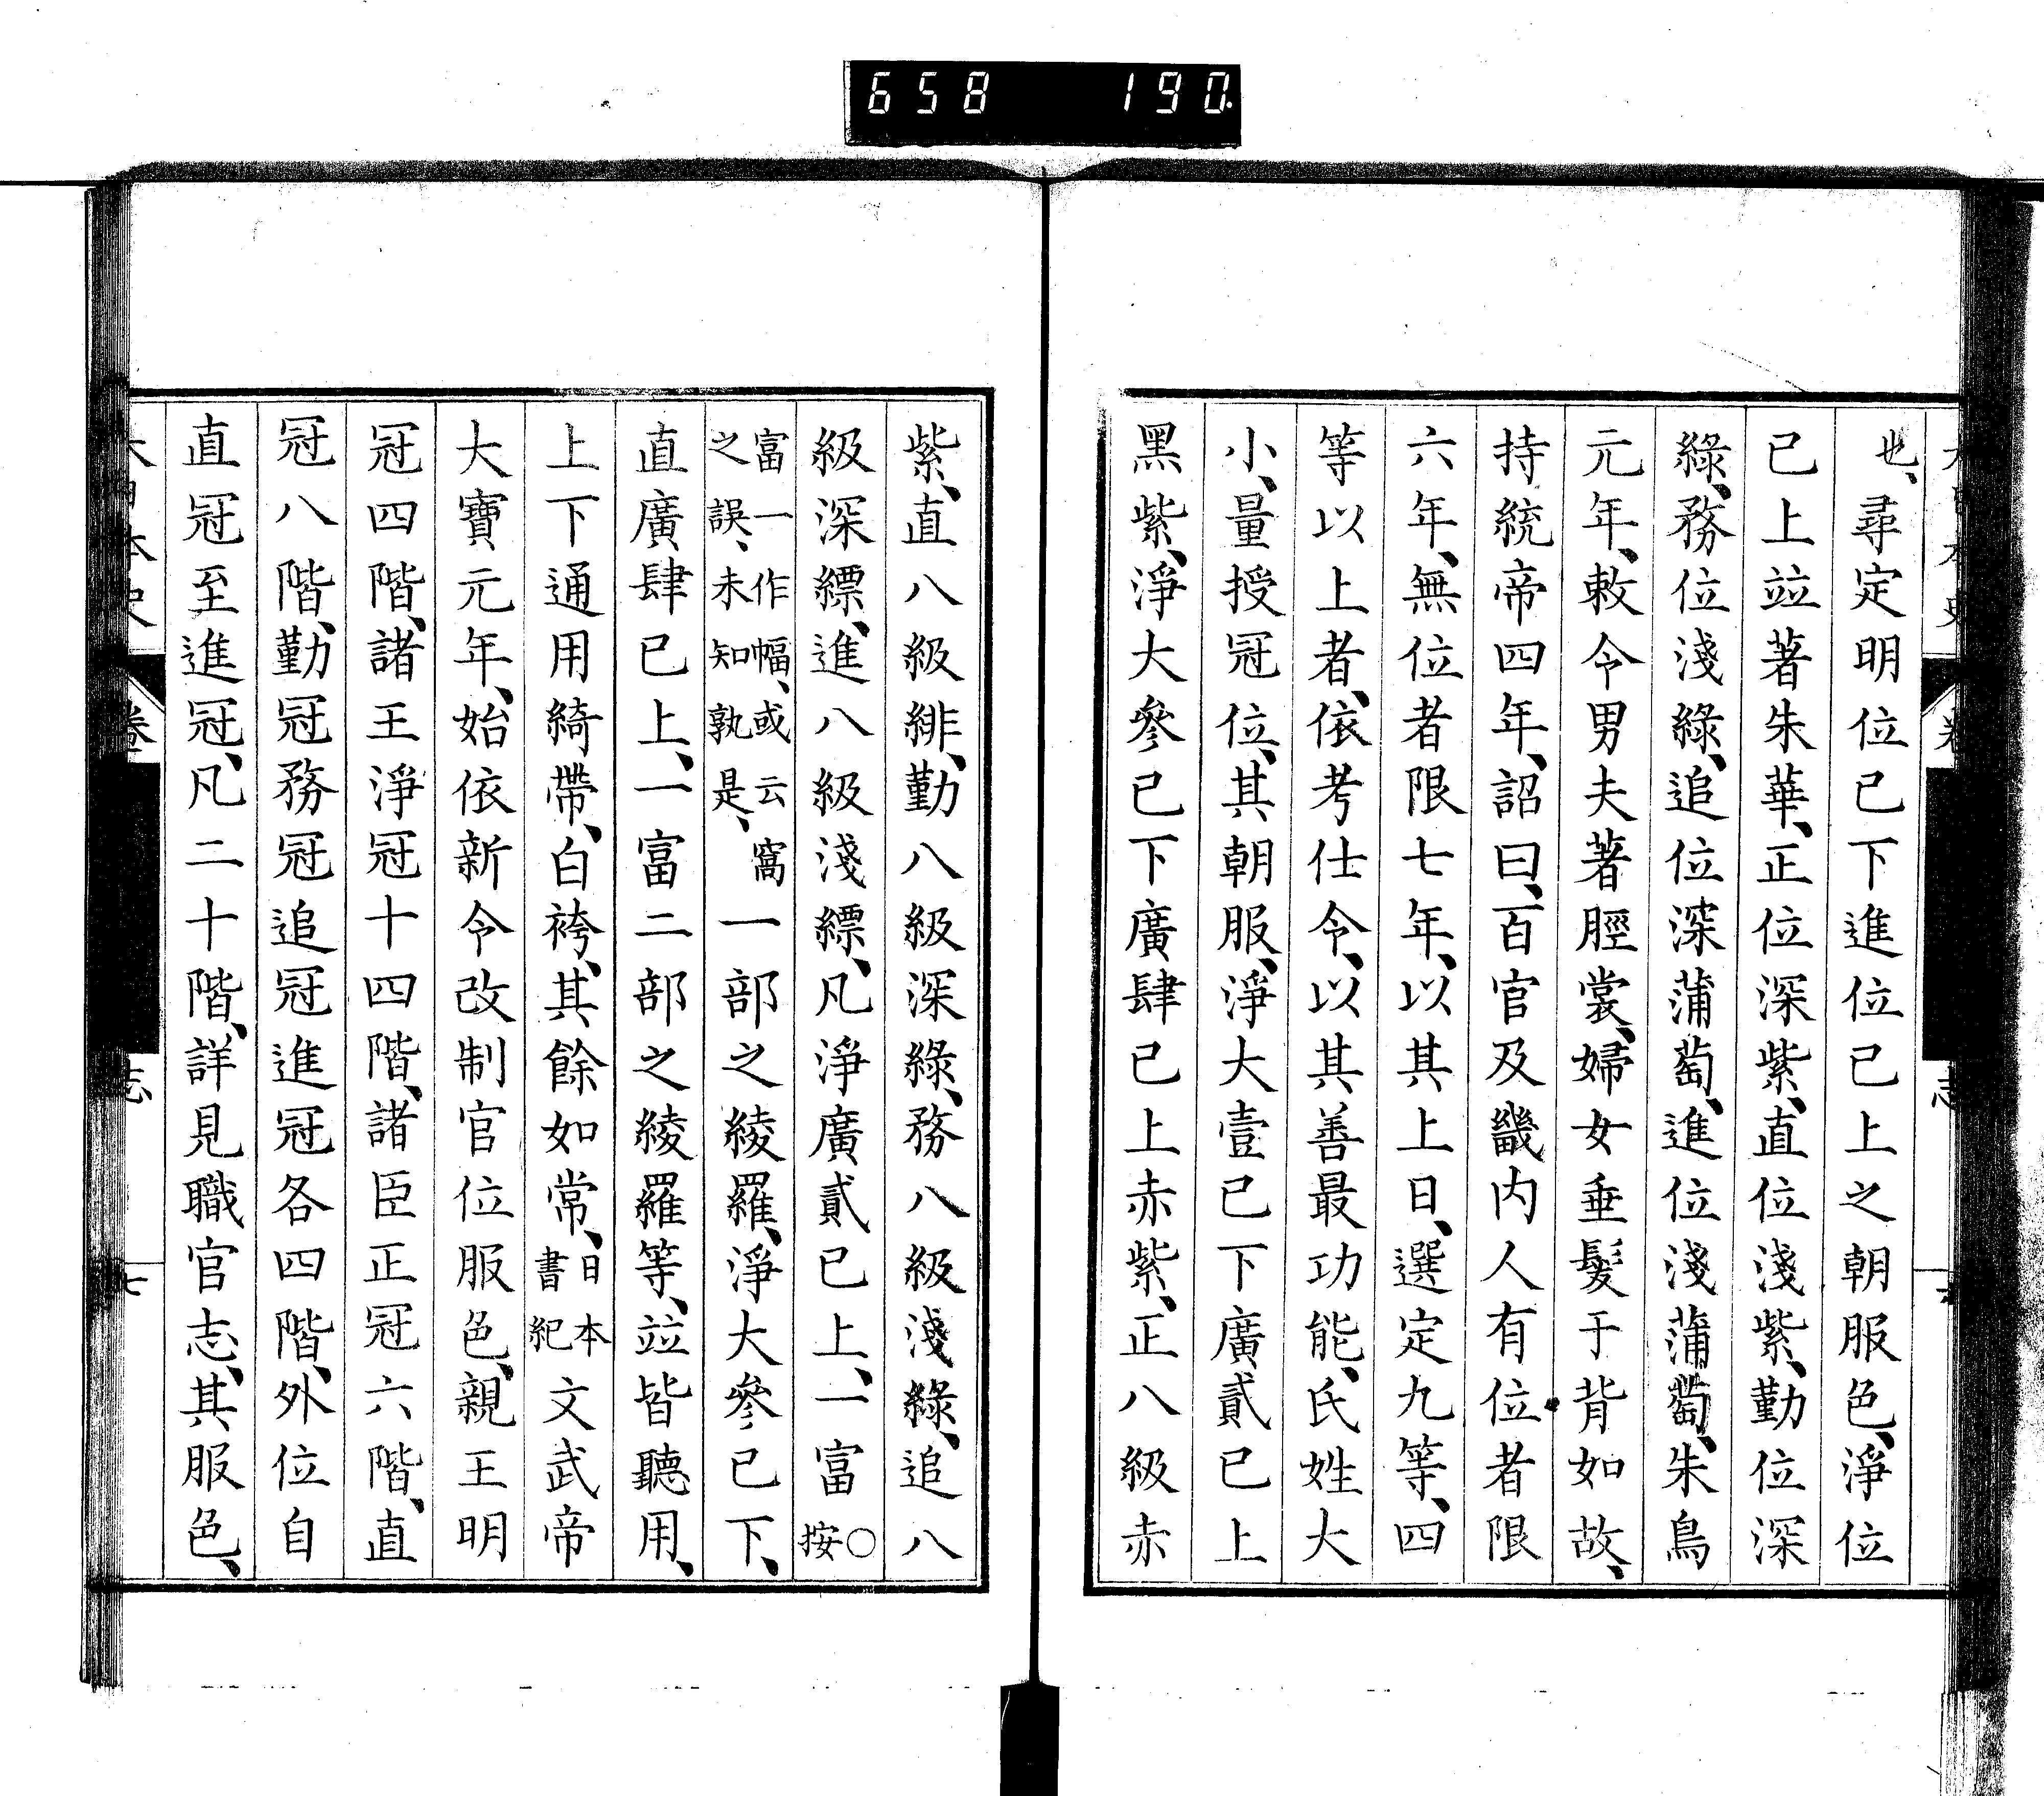 658 190.
也、尋定明位已下進位已上之朝服色、淨位
已上竝著朱華、正位深紫、直位淺紫、勤位深
綠、務位淺綠、追位深蒲萄、進位淺蒲萄、朱鳥
元年、敕令男夫著脛裳、婦女垂髮于背如故、
持統帝四年、詔曰、百官及畿内人有位者限
六年、無位者限七年、以其上日、選定九等、四
等以上者、依考仕令、以其善最功能、氏姓大
小、量授冠位、其朝服、淨大壹已下廣貳已上
黑紫、淨大參已下廣肆已上赤紫、正八級赤
紫、直八級緋、勤八級深綠、務八級淺綠、追八
級深縹、進八級淺縹、凡淨廣貳已上、一富○按
富一作幅、或云窩之誤、未知孰是、一部之綾羅、淨大參已下、
直廣肆已上、一富二部之綾羅等、竝皆聽用、
上下通用綺帶、白袴、其餘如常、日本書紀文武帝
大寶元年、始依新令改制官位服色、親王明
冠四階、諸王淨冠十四階、諸臣正冠六階、直
冠八階、勤冠務冠追冠進冠各四階、外位自
直冠至進冠、凡二十階、詳見職官志、其服色、
大日本史 卷 志 七